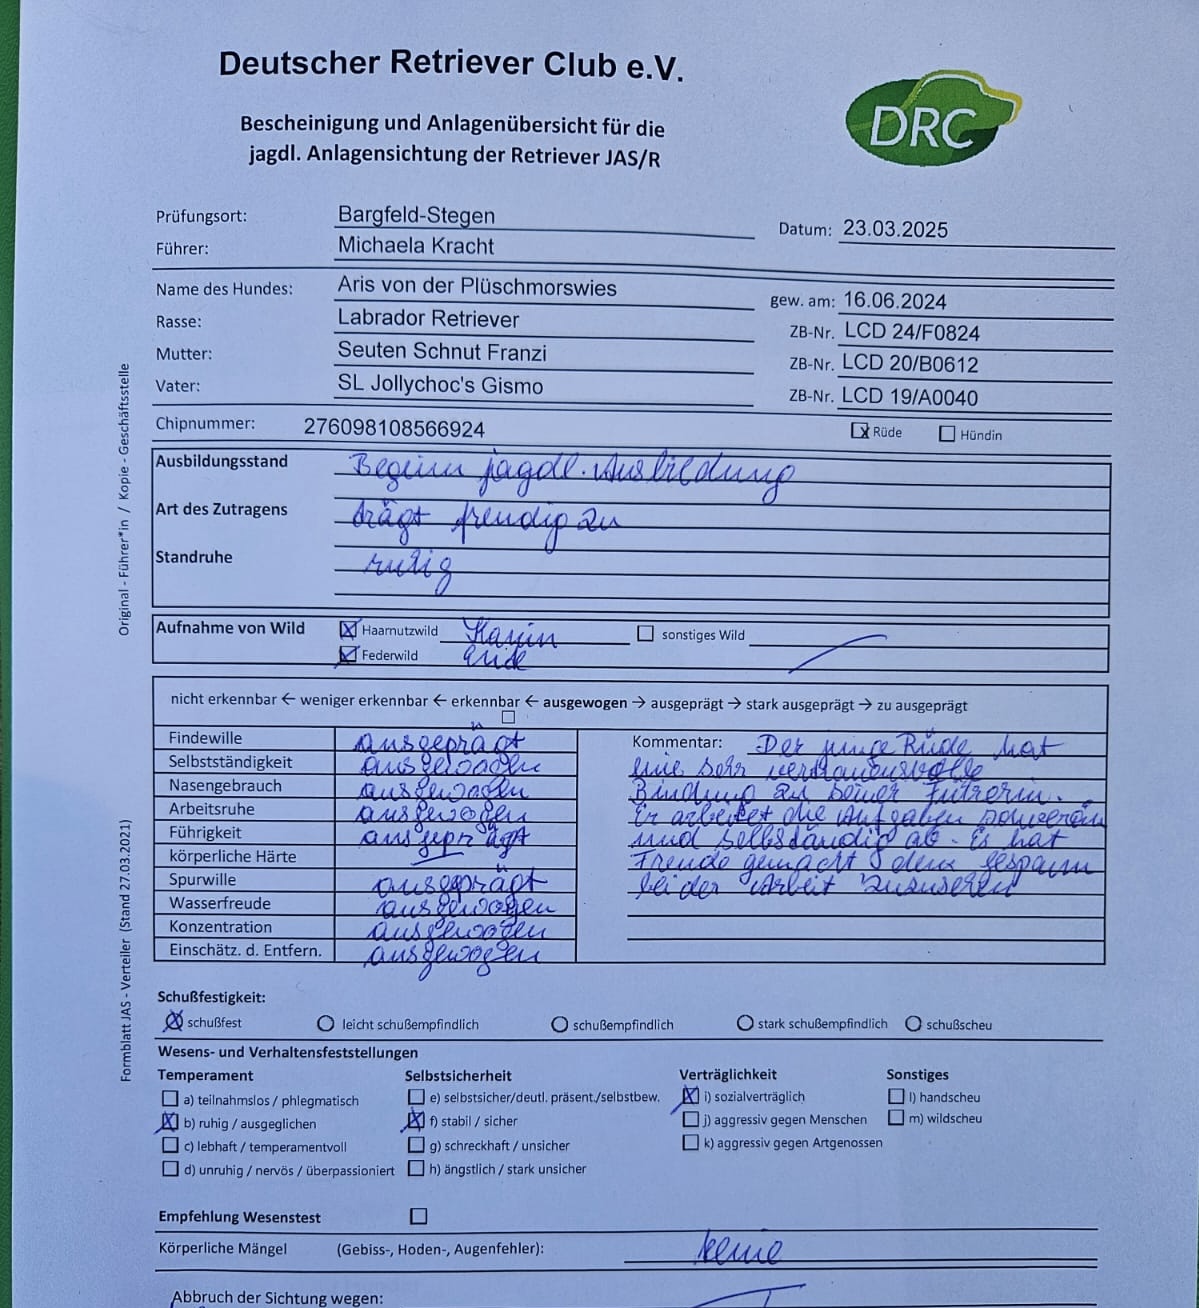 Deutscher Retriever Club e.V.
DRC
Bescheinigung und Anlagenübersicht für die
jagdl. Anlagensichtung der Retriever JAS/R
Prüfungsort: Bargfeld-Stegen Datum: 23.03.2025
Führer: Michaela Kracht
Name des Hundes: Aris von der Plüschmorswies gew. am: 16.06.2024
Rasse: Labrador Retriever ZB-Nr. LCD 24/F0824
Mutter: Seuten Schnut Franzi ZB-Nr. LCD 20/B0612
Vater: SL Jollychoc's Gismo ZB-Nr. LCD 19/A0040
Chipnummer: 276098108566924 Rüde Hündin
Ausbildungsstand Beginn jagdl. Ausbildung
Art des Zutragens trägt freudig zu
Standruhe ruhig
Aufnahme von Wild Haarnutzwild Kanin sonstiges Wild
Federwild Ente
nicht erkennbar ← weniger erkennbar ← erkennbar ← ausgewogen → ausgeprägt → stark ausgeprägt → zu ausgeprägt
Findewille ausgeprägt
Selbstständigkeit ausgewogen
Nasengebrauch ausgewogen
Arbeitsruhe ausgewogen
Führigkeit ausgeprägt
körperliche Härte
Spurwille ausgeprägt
Wasserfreude ausgewogen
Konzentration ausgewogen
Einschätz. d. Entfern. ausgewogen
Kommentar: Der junge Rüde hat
eine sehr vertrauensvolle
Bindung zu seiner Führerin.
Er arbeitet die Aufgaben souverän
und selbständig ab. Es hat
Freude gemacht dem Gespann
bei der Arbeit zuzusehen
Schußfestigkeit:
schußfest leicht schußempfindlich schußempfindlich stark schußempfindlich schußscheu
Wesens- und Verhaltensfeststellungen
Temperament Selbstsicherheit Verträglichkeit Sonstiges
a) teilnahmslos / phlegmatisch e) selbstsicher/deutl. präsent./selbstbew. i) sozialverträglich l) handscheu
b) ruhig / ausgeglichen f) stabil / sicher j) aggressiv gegen Menschen m) wildscheu
c) lebhaft / temperamentvoll g) schreckhaft / unsicher k) aggressiv gegen Artgenossen
d) unruhig / nervös / überpassioniert h) ängstlich / stark unsicher
Empfehlung Wesenstest
Körperliche Mängel (Gebiss-, Hoden-, Augenfehler): keine
Abbruch der Sichtung wegen:
Original - Führer*in / Kopie - Geschäftsstelle
Formblatt JAS - Verteiler (Stand 27.03.2021)